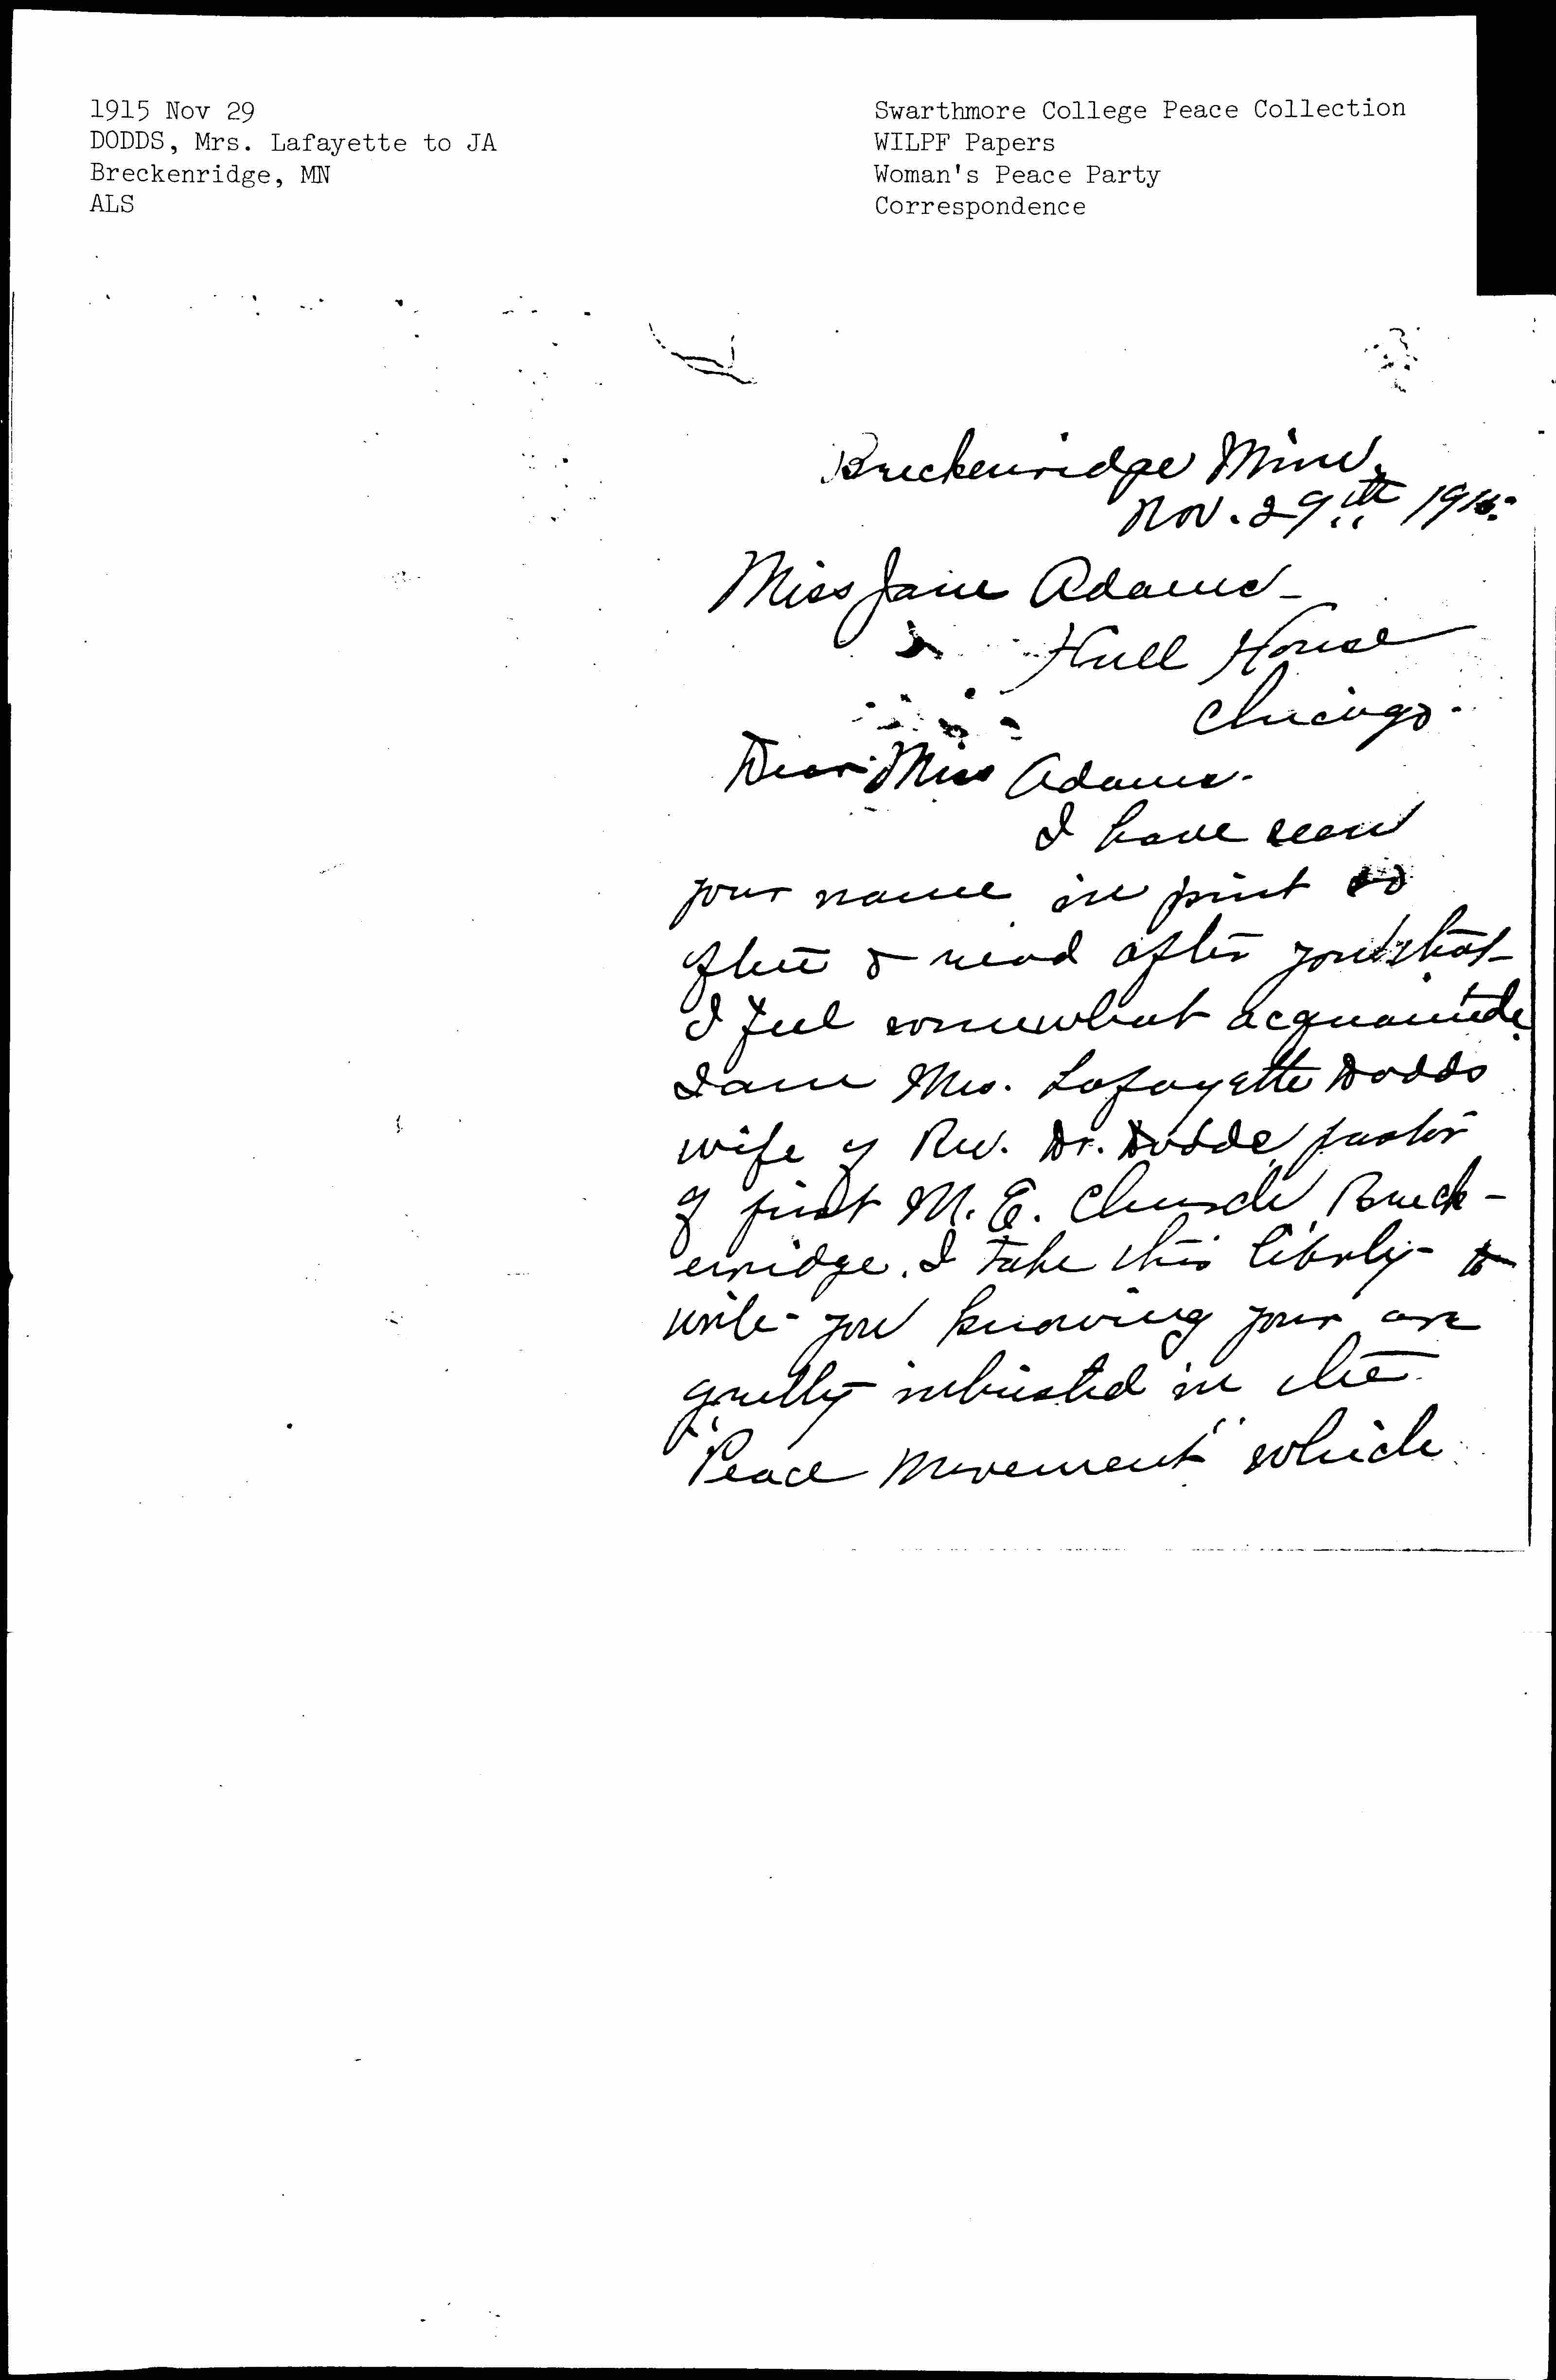 1915 Nov 29
DODDS, Mrs. Lafayette to JA
Breckenridge, MN
ALS
Swarthmore College Peace Collection
WILPF Papers
Woman's Peace Party
Correspondence
Breckenridge Minn.
Nov. 29th 1915.
Miss Jane Adams-
Hull House
Chicago.
Dear Miss Adams.
I have seen
your name in print so
often & read after you that
I feel somewhat acquainted.
I am Mrs. Lafayette Dodds
wife of Rev. Dr. Dodds, pastor
of first M. E. Church, Breck-
enridge. I take this liberty to
write you knowing your are
greatly interested in the
"Peace Movement" which